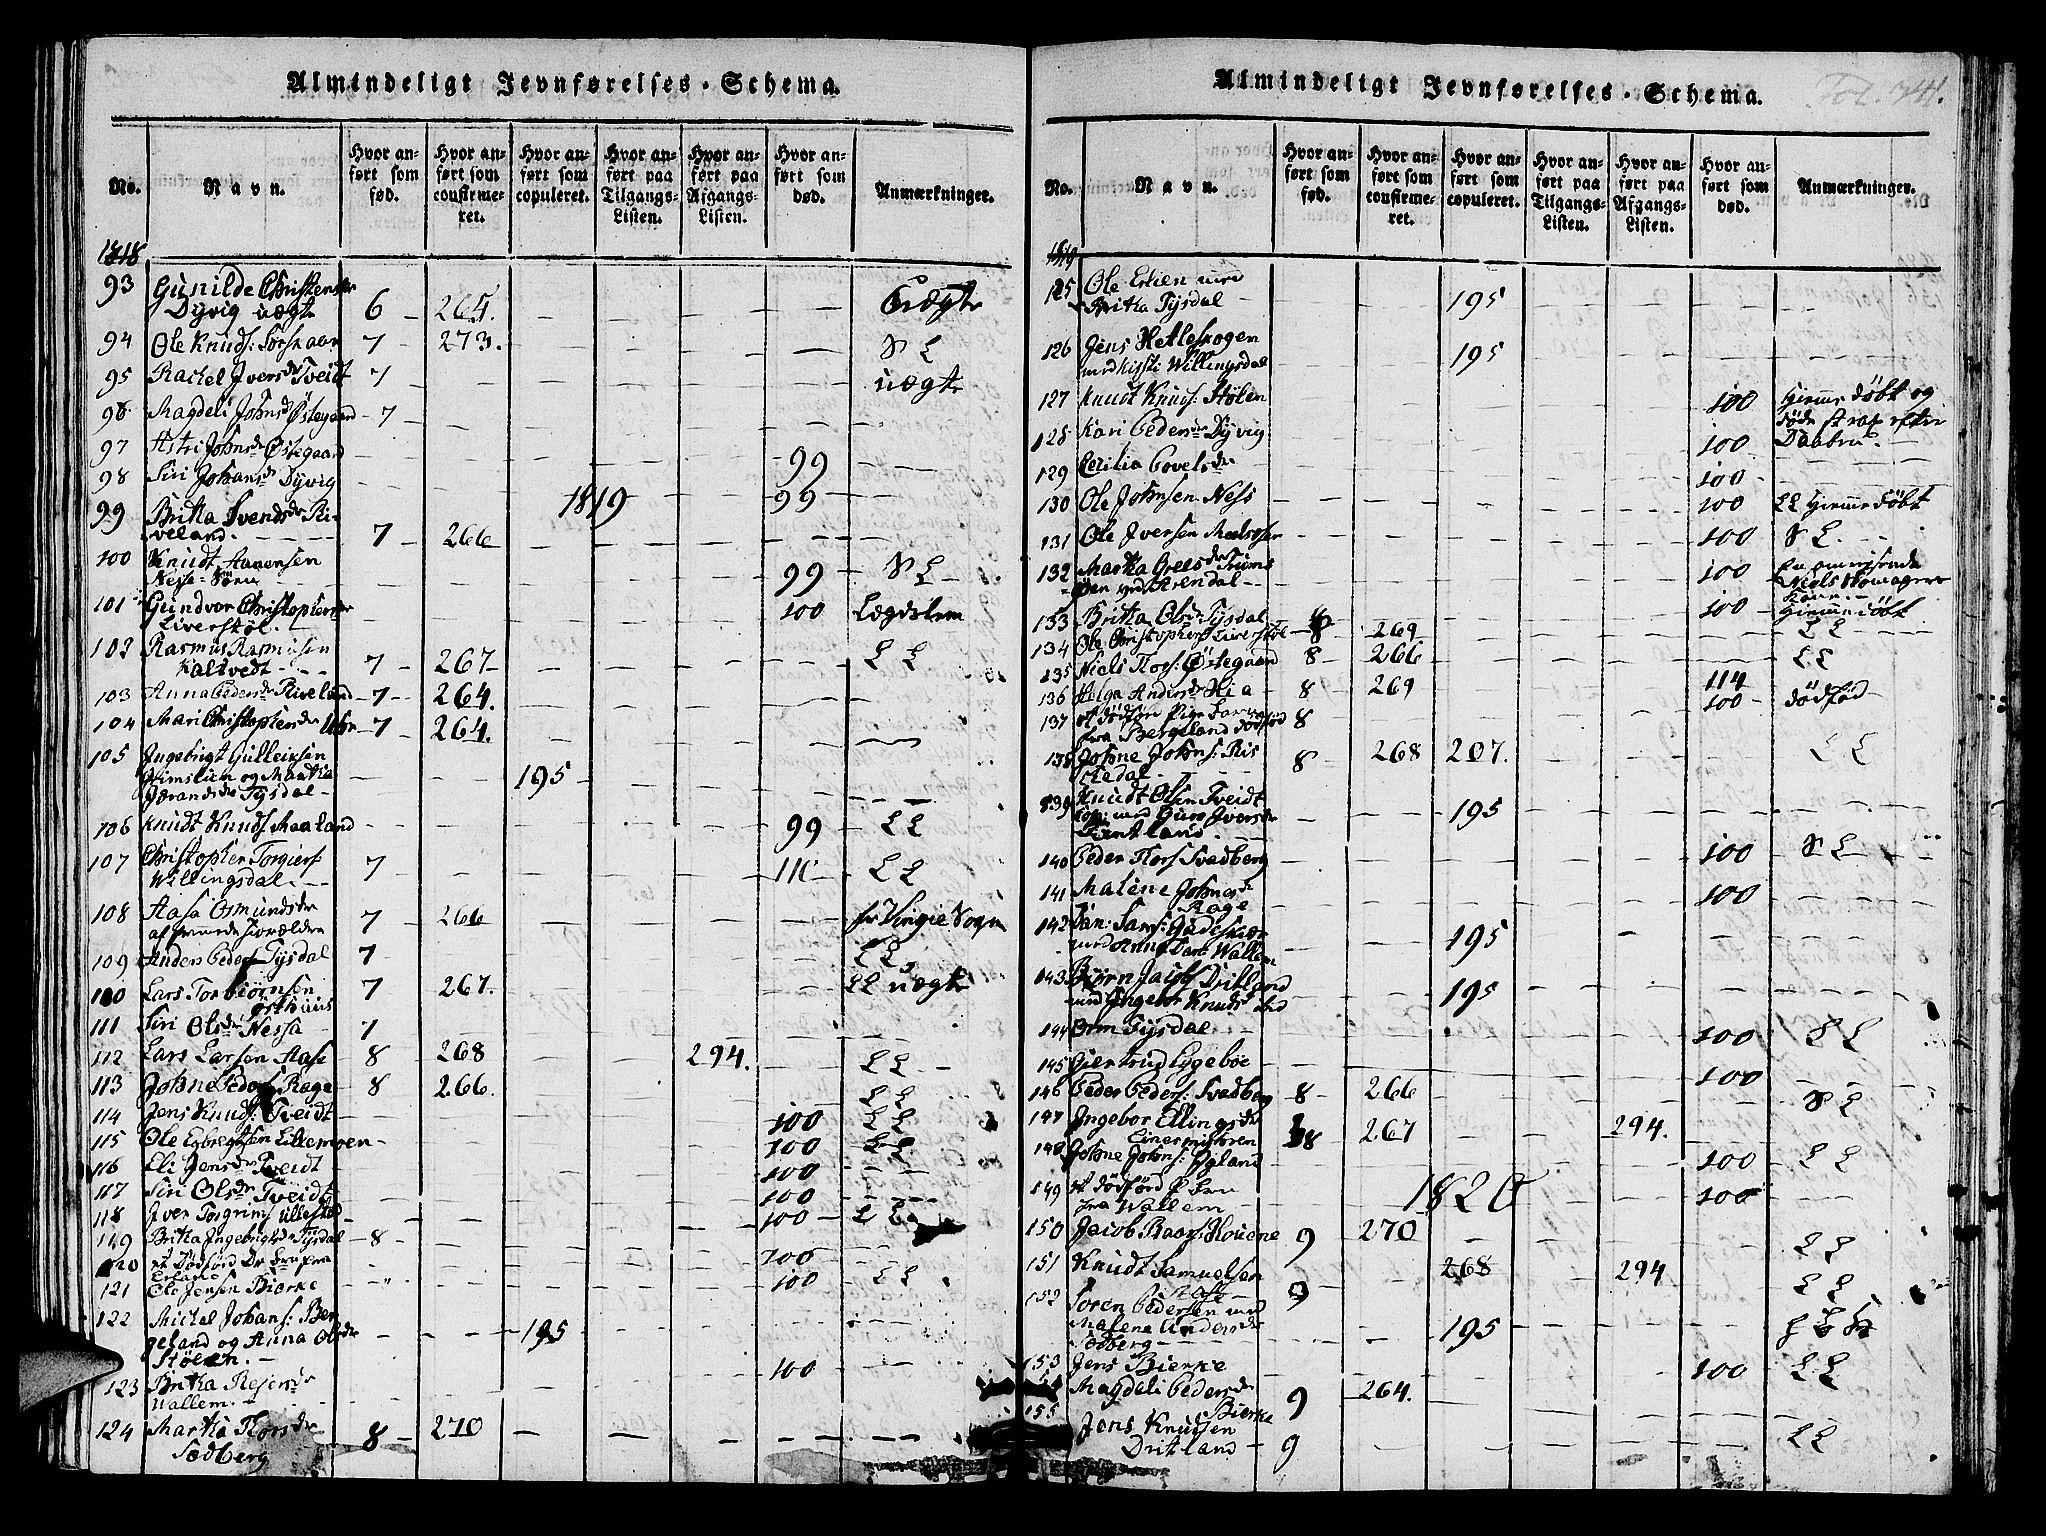 Almindeligt Jevnførelses-Schema.
No.
Navn.
Hvor anført som fød.
Hvor anført som confirmeret.
Hvor anført som copuleret.
Hvor anført paa Tilgangs-Listen.
Hvor anført paa Afgangs-Listen.
Hvor anført som død.
Anmærkninger.
1818
93 Gunilde Christensdr
Dyvig uægte 6 264. Uægte
94 Ole Knuds: Sørskaar 7 273. S L
95 Rachel Iversdr Tveidt 7 uægte
96 Magdeli Johnsdr Østegaard 7
97 Astri Johnsdr Østegaard 99
98 Siri Johansdr Dyvig 99
1819
99 Britha Svendsdr Ri-
veland. 7 266
100 Knudt Aanensen
Nesse 99 S L
101 Gundvor Christophersdr
Liverstöl. 100 Lægdslem
102 Rasmus Rasmusen
Kaltvedt 7 267 L L
103 Anna Pedersdr Riveland 7 264.
104 Mari Christophersdr 7 264.
105 Ingebrigt Gulleiksen
Himslien og Martha
Tysdal 195
106 Knudt Knuds Maaland 99 L L
107 Christopher Torgiers:
Willingsdal. 7 110 L L
108 Aasa Osmundsdr
7 266 Sogn
109 Anders Peders Tysdal 7 L L
110 Lars Torbiörnsen
Østhuus 7 267. L L uægte
111 Siri Olsdr Nessa 7
112 Lars Larsen Aase 8 268 294. L L
113 Johne Peders Rage 8 266. L L
114 Jens Knuds: Tveidt 100 L L
115 Ole Egbregtsen Lillemoen 100 L L
116 Eli Jensdr Tveidt 100
117 Siri Olsdr Tveidt 100
118 Iver Torgrims Ullestad 100 L L
119 Britha Ingebrigtsdr Tysdal 8
120 et Dödförd Dr Barn fra 100
121 Ole Jensen Bierke 100 L L
122 Michel Johans: Ber
geland og Anna Olsdr
Stölen. 195
123 Britha
Wallem. 100
124 Martha Thorsdr
Sædberg 8 270
Almindeligt Jevnførelses-Schema.
Fol. 741.
No.
Navn.
Hvor anført som fød.
Hvor anført som confirmeret.
Hvor anført som copuleret.
Hvor anført paa Tilgangs-Listen.
Hvor anført paa Afgangs-Listen.
Hvor anført som død.
Anmærkninger.
1819
125 Ole Erlien med
Britha Tysdal 195
126 Jens Hetleskogen
med Kisti Willingsdal 195
127 Knudt Knuds: Stölen 100 Hiemme döbt og
döde strax efter
Daaben.
128 Kari Pedersdr Dyvig 100
129 Cecilia Povelsdr 100
130 Ole Johnsen Ness 100 L L Hiemme döbt
131 Ole Iversen 100 S L.
132 Martha Greesdr
ved Arendal 100
Kone.
133 Britha Olsdr Tysdal 100 Hiemme döbt
134 Ole Christophers Liverstöl 8 269 L L
135 Niels Thors: Østegaard 8 266 L L
136 Helga Andersdr Hia 8 269 114
137 et dödför Pige Barn
fra Bergeland dödföd 8 100 dödföd
138 Johne Johns: Ris
kedal 8 268 207. L L
139 Knudt Olsen Tveidt
cop: med Guro Iversdr
land. 195
140 Peder Thors Svadberg 100 S L
141 Malene Johnsdr
Rage 100
142 Lars: Gudeskær
med Anna Wallem 195
143 Biörn Jacobs Dritland
med Ingebor Knudsdr 195
144 Orm Tysdal 100 L L
145 Giertrud Eygeböe 100
146 Peder Peders: Svadberg 8 266 S L
147 Ingebor Ellingsdr
8 267 294.
148 Johne Johns: Øyland 100 L L
149 et dödförd P Barn
fra Wallem 100
1820
150 Jacob Baars Houene 9 270 L L
151 Knudt Samuelsen
9 268 294 L L
152 Soren Pedersen med
Malene Andersdr
Sædberg 195
153 Jens Bierke 100 L L
Magdeli Pedersdr
Bierke 9 264.
155 Jens Knudsen
Dritland 9 L L